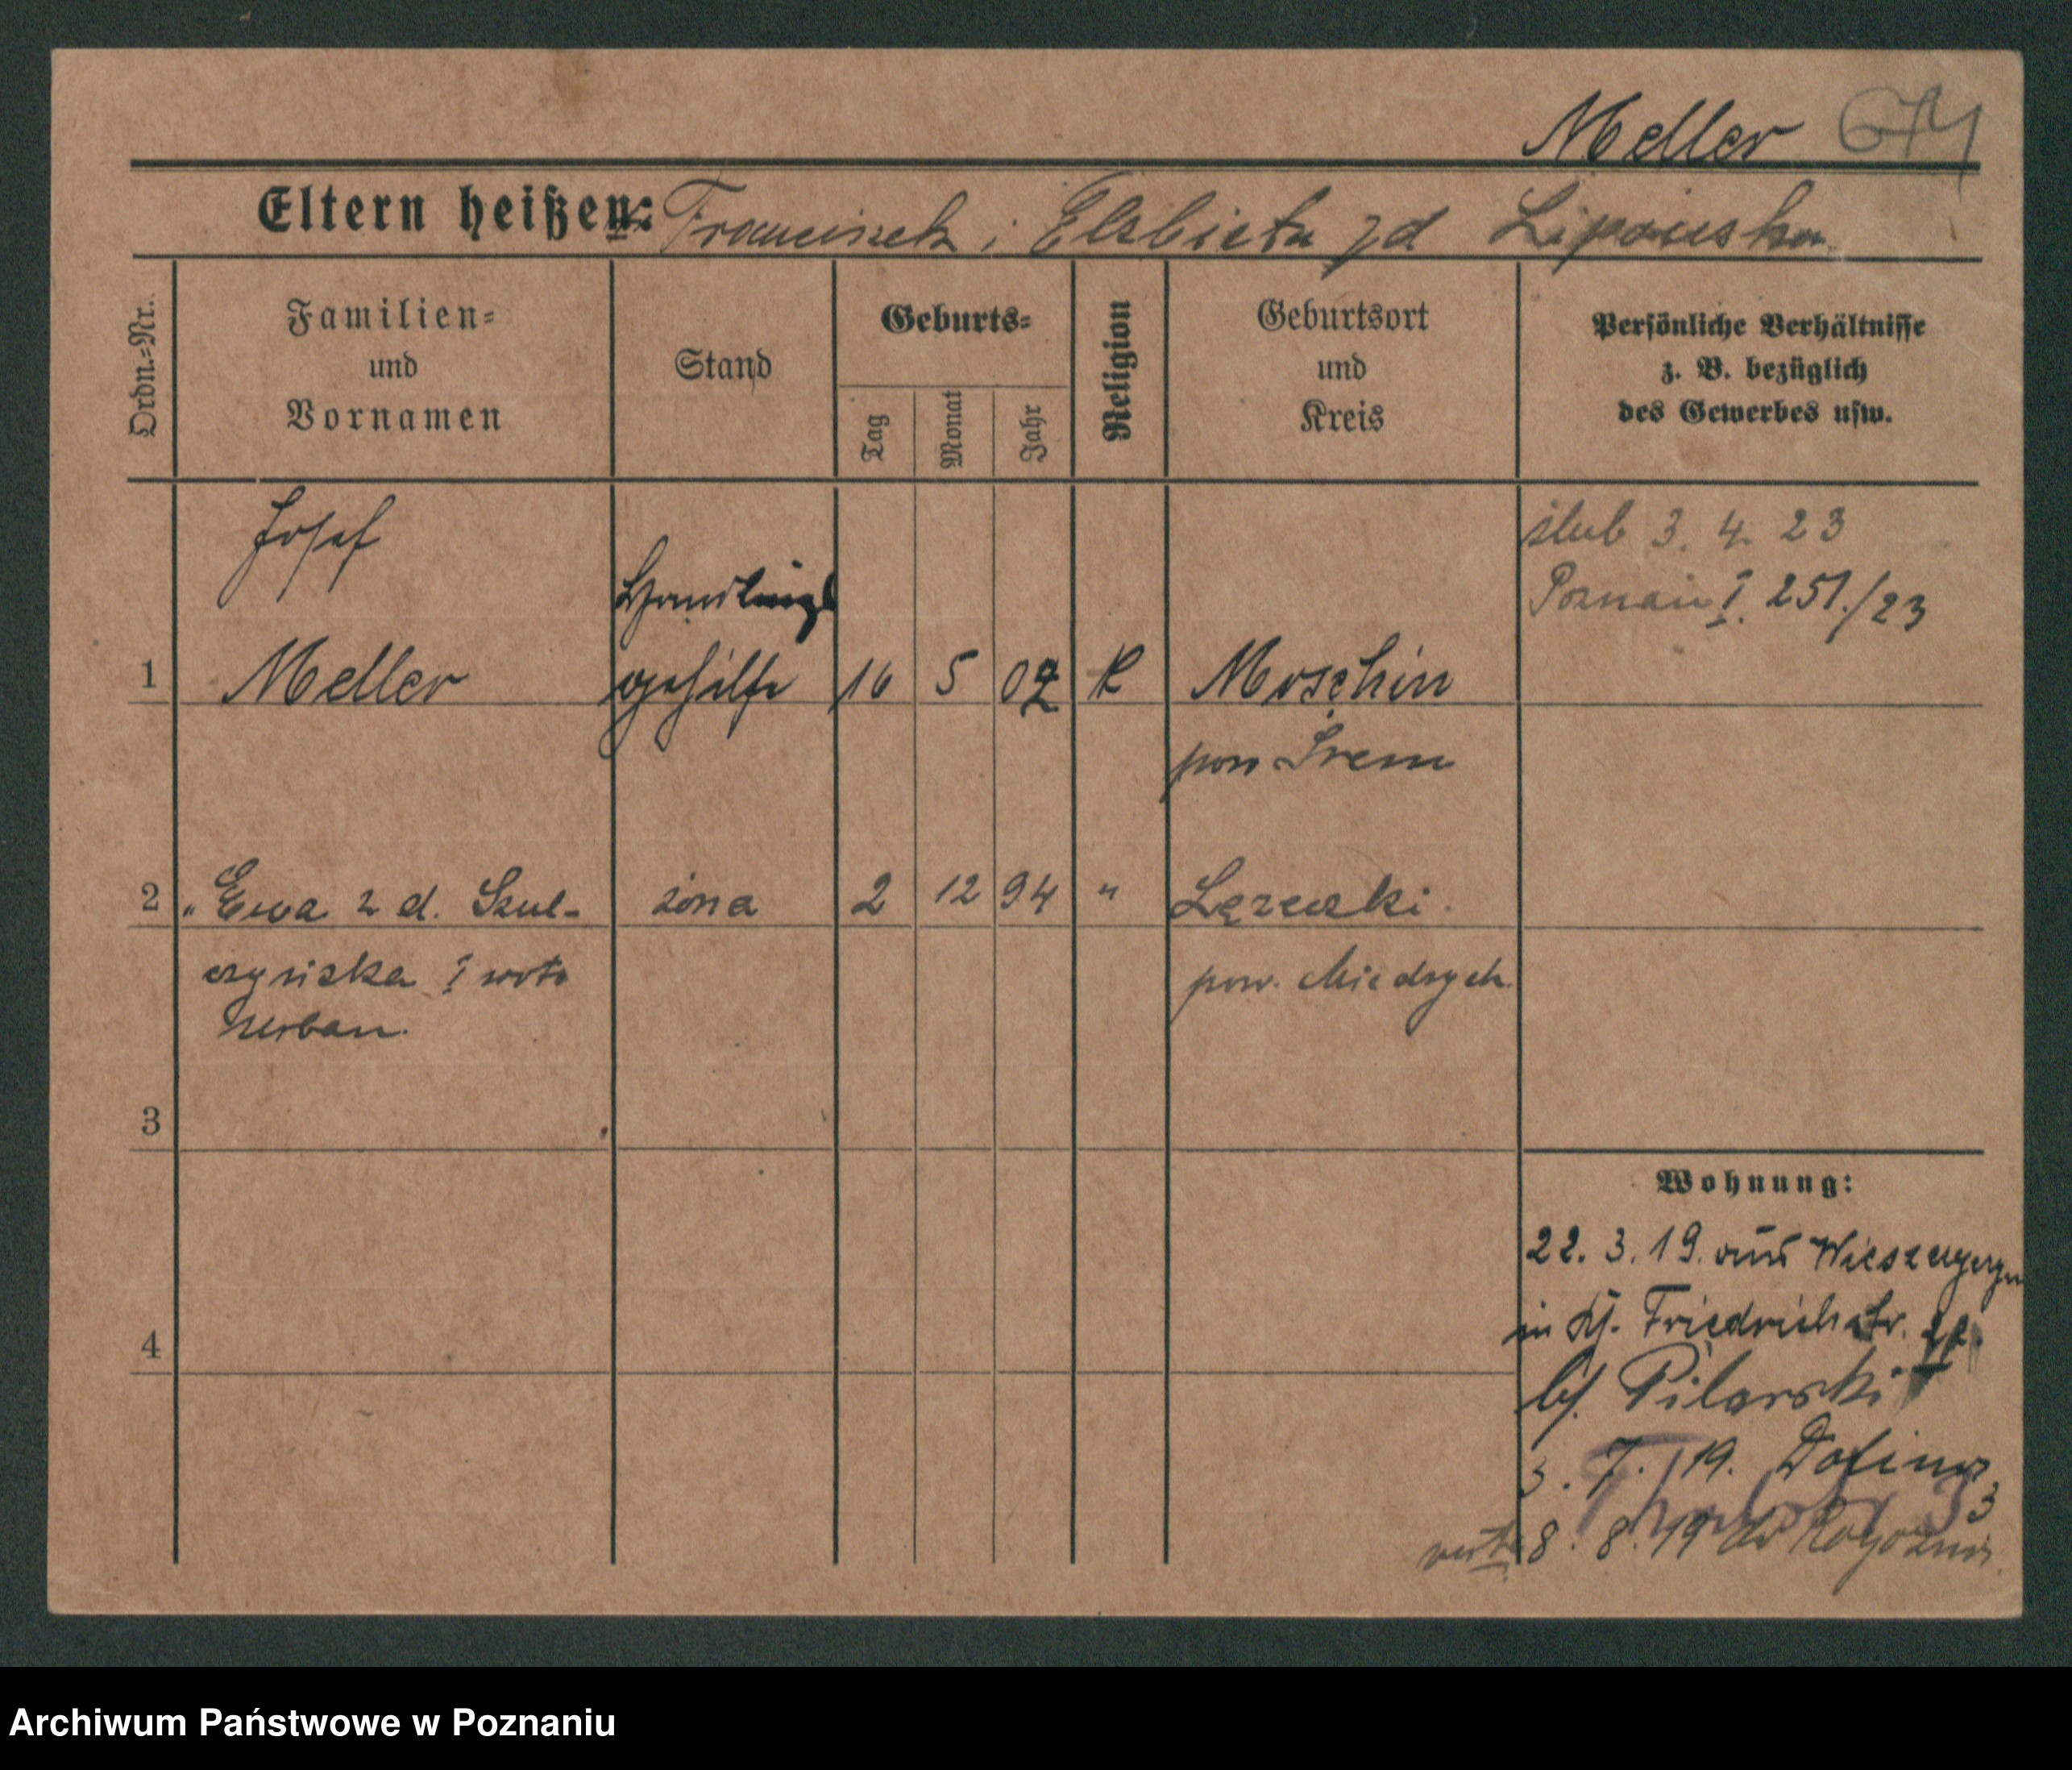 Meller
Eltern heißen: Franciszek i Elsbieta zd Lipowska
Ordn.=Nr.
Familien=
und
Vornamen
Stand
Geburts=
Tag
Monat
Jahr
Religion
Geburtsort
und
Kreis
Persönliche Verhältnisse
z. B. bezüglich
des Gewerbes usw.
ślub 3. 4. 23
Poznań I. 251./23
1
Josef
Meller
Handlungs
gehilfe
16 5 02
K
Moschin
pow Śrem
2
" Ewa z d. Szul-
czyńska I voto
Urban.
żona
2 12 94
"
pow. Miedzych.
3
4
Wohnung:
22. 3. 19. aus
in Friedrichstr.
bf. Pilarski
3. 7. 19. Dolina 3
verte 8. 8. 19 do Rogoźna
Archiwum Państwowe w Poznaniu